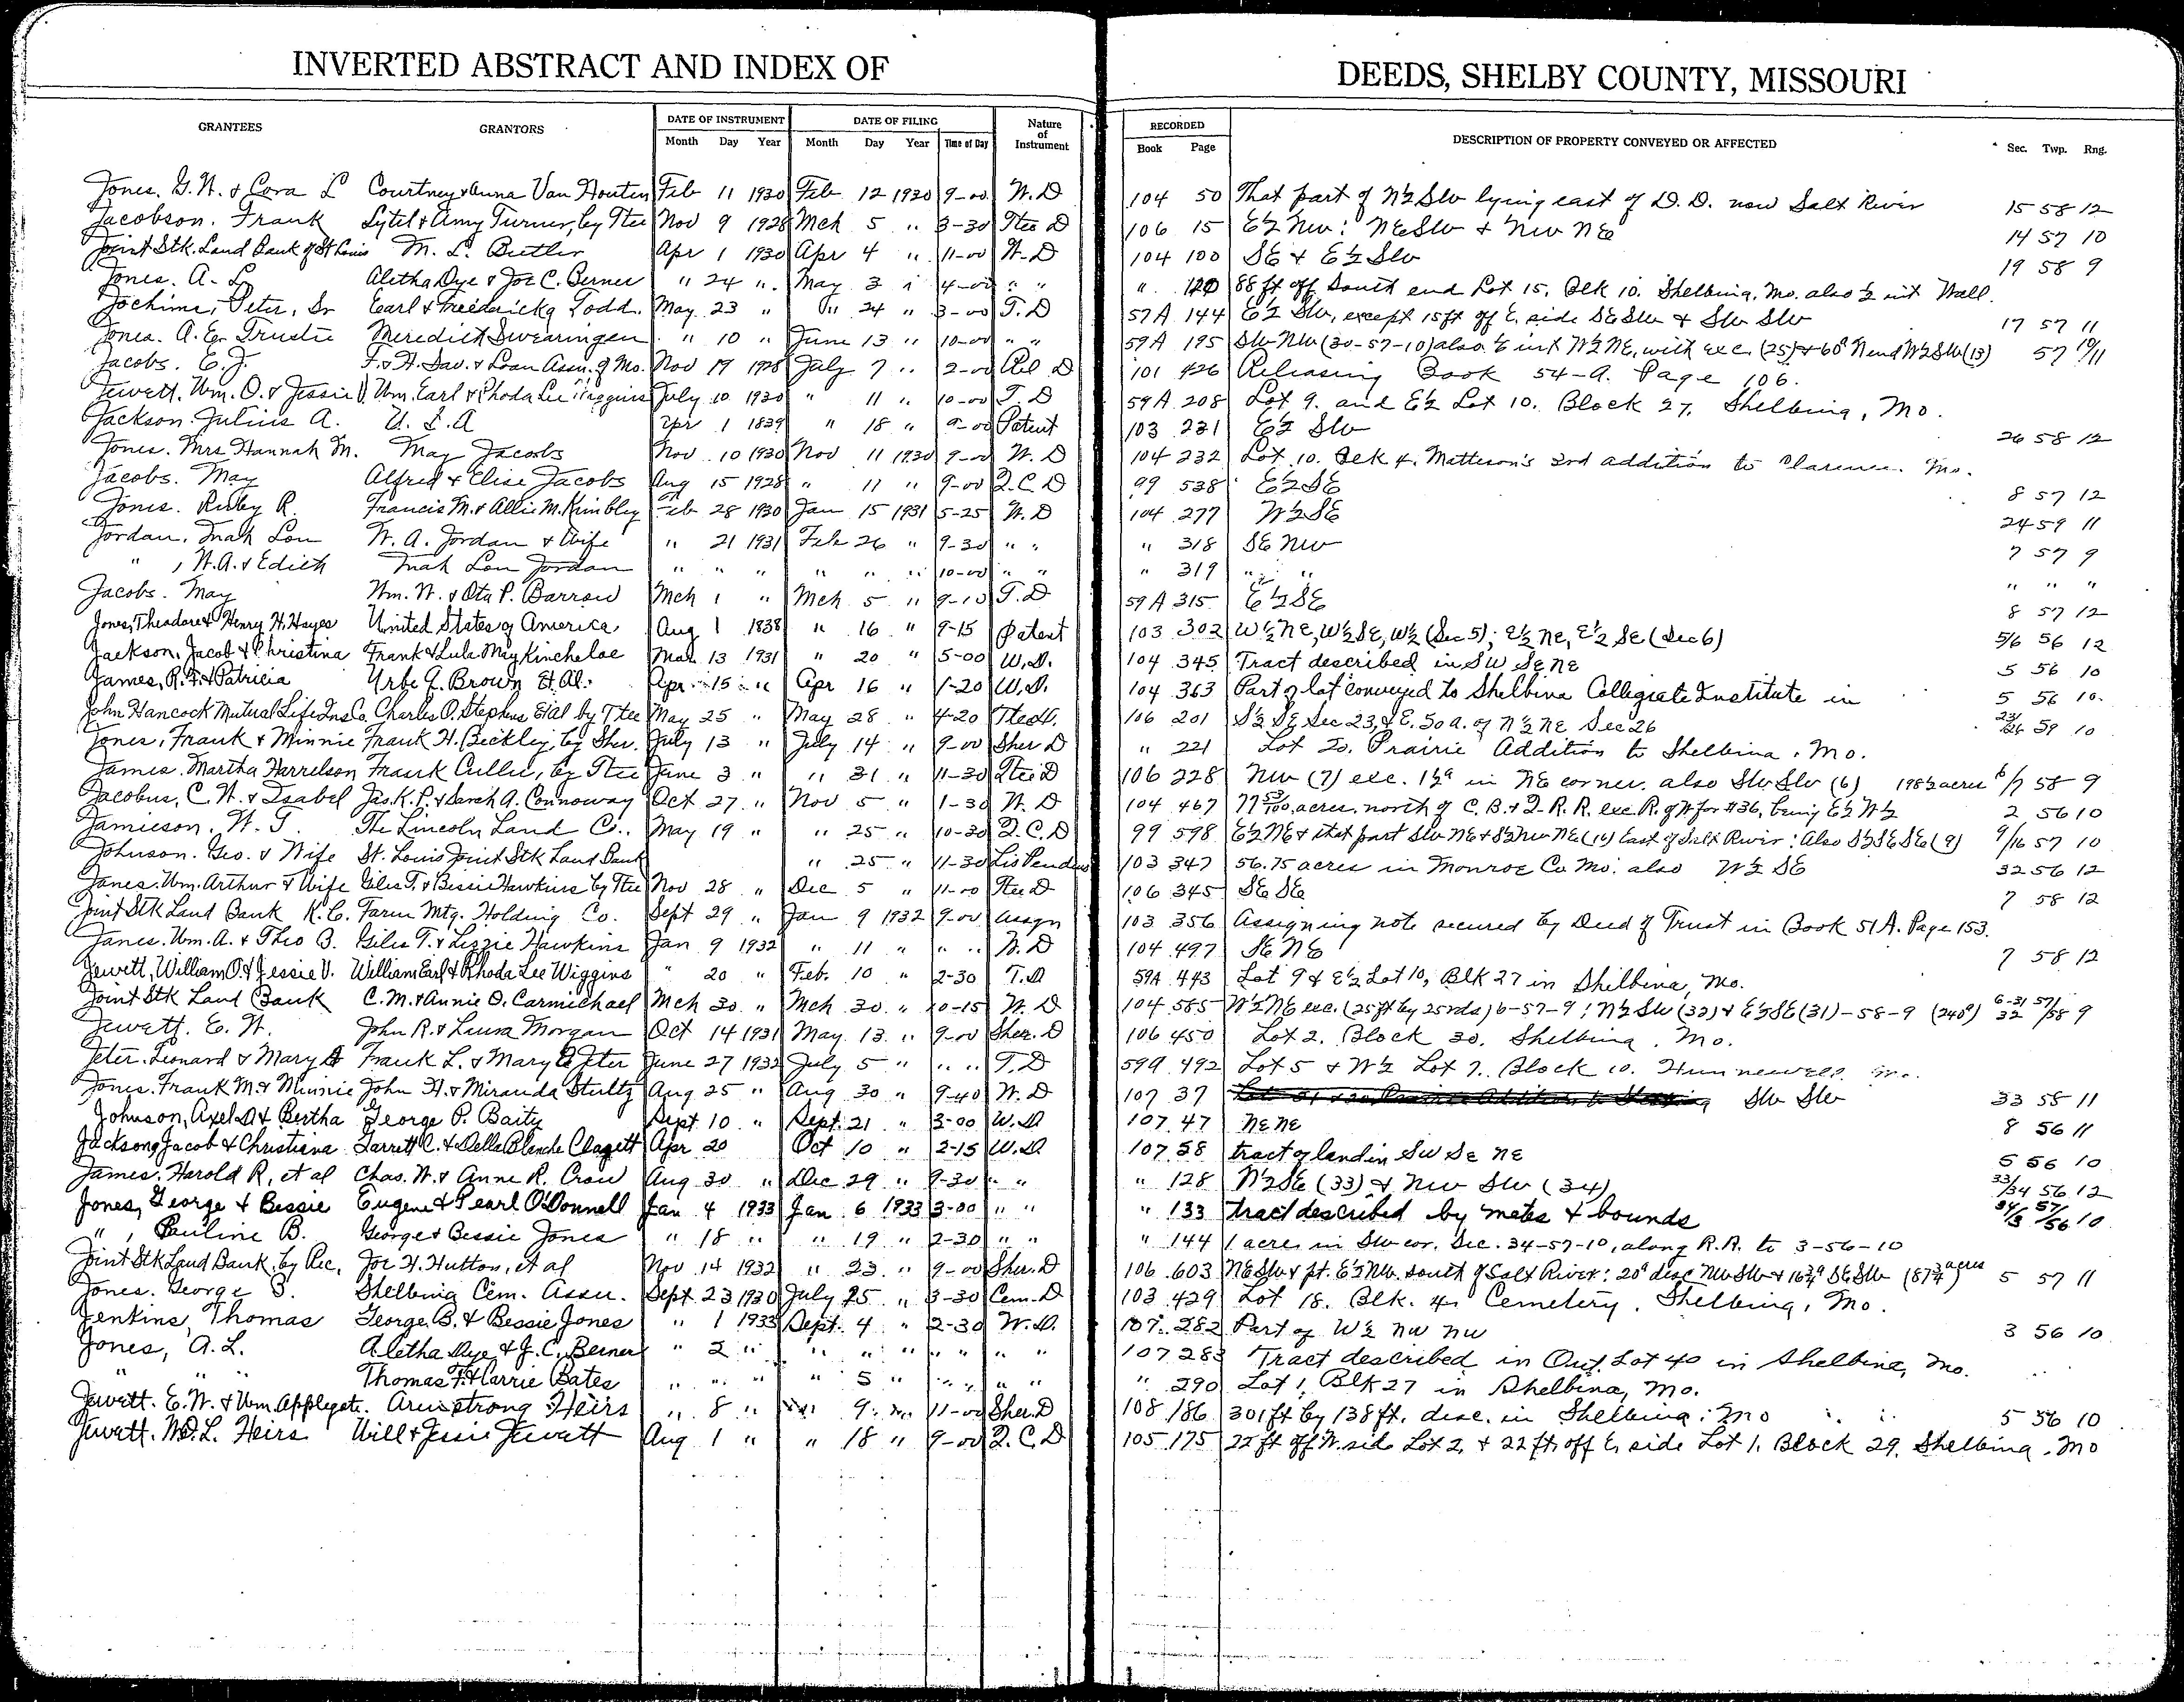 INVERTED ABSTRACT AND INDEX OF DEEDS, SHELBY COUNTY, MISSOURI
GRANTEES GRANTORS DATE OF INSTRUMENT DATE OF FILING Nature of Instrument RECORDED DESCRIPTION OF PROPERTY CONVEYED OR AFFECTED Sec. Twp. Rng.
Month Day Year Month Day Year Time of Day Book Page
Jones. G. W. & Cora L Courtney & Anna Van Houten Feb 11 1930 Feb 12 1930 9-00 W. D 104 50 That part of W½ SW lying east of D. D. now Salt River 15 58 12
Jacobson. Frank Lytel & Amy Turner, by Ttee Nov 9 1928 Mch 5 " 3-30 Ttee D 106 15 E½ NW: NE SW & NW NE 14 57 10
Joint Stk. Land Bank of St Louis M. L. Butler Apr 1 1930 Apr 4 " 11-00 W. D 104 100 SE & E½ SW 19 58 9
Jones. A. L. Aletha Dye & Joe C. Berner " 24 " May 3 " 4-00 " " " 120 88 ft off South end Lot 15. Blk 10. Shelbina. Mo. also ½ int Wall.
Jochims, Peter, Sr Earl & Fredericka Todd. May 23 " " 24 " 3-00 T. D 57A 144 E½ SW, except 15 ft off E. side SE SW & SW SW 17 57 11
Jones. A. E. Trustee Meredith Swearingen " 10 " June 13 " 10-00 " " 59A 195 SW NW (30-57-10) also int W½ NE, with exc. (25) & 60ª N end W½ SW (13) 57 10/11
Jacobs. E. J. F. & H. Sav. & Loan Assn. of Mo. Nov 19 1928 July 7 " 2-00 Rel D 101 426 Releasing Book 54-A. Page 106.
Jewett. Wm. O. & Jessie V Wm. Earl & Rhoda Lee Wiggins July 10 1930 " 11 " 10-00 T. D 59A 208 Lot 9. and E½ Lot 10. Block 27. Shelbina, Mo.
Jackson. Julius A. U. S. A Apr 1 1839 " 18 " 9-00 Patent 103 231 E½ SW 26 58 12
Jones. Mrs Hannah M. May Jacobs Nov 10 1930 Nov 11 1930 9-00 W. D 104 232 Lot 10. Blk 4. Matteson's 3rd addition to Clarence. Mo.
Jacobs. May Alfred & Elise Jacobs Aug 15 1928 " 11 " 9-00 Q. C. D 99 538 E½ SE 8 57 12
Jones. Ruby R. Francis M. & Allie M. Kimbley Feb 28 1930 Jan 15 1931 5-25 W. D 104 277 W½ SE 24 59 11
Jordan. Inah Lou W. A. Jordan & Wife " 21 1931 Feb 26 " 9-30 " " " 318 SE NW 7 57 9
" , W. A. & Edith Inah Lou Jordan " " " " " " 10-00 " " " 319 " " " " "
Jacobs. May Wm. W. & Ota P. Barrow Mch 1 " Mch 5 " 9-10 T. D 59A 315 E½ SE 8 57 12
Jones, Theodore & Henry H. Hayes United States of America Aug 1 1838 " 16 " 9-15 Patent 103 302 W½ NE, W½ SE, W½ (Sec 5); E½ NE, E½ SE (Sec 6) 5/6 56 12
Jackson, Jacob & Christina Frank & Lula May Kincheloe Mar. 13 1931 " 20 " 5-00 W. D. 104 345 Tract described in SW SE NE 5 56 10
James, R. F. & Patricia Urbe Q. Brown Et Al. Apr. 15 " Apr 16 " 1-20 W. D. 104 363 Part of lot conveyed to Shelbina Collegiate Institute in 5 56 10.
John Hancock Mutual Life Ins Co. Charles O. Stephens Etal by Ttee May 25 " May 28 " 4-20 106 201 S½ SE Sec 23, & E. 50 a. of N½ NE Sec 26 23/26 59 10
Jones, Frank & Minnie Frank H. Beckley, by Sher. July 13 " July 14 " 9-00 Sher D " 221 Lot 20. Prairie Addition to Shelbina. Mo.
James. Martha Harrelson Frank Culler, by Ttee June 3 " " 31 " 11-30 Ttee D 106 228 NW (7) exc. 1½ª in NE corner. also SW SW (6) 198½ acres 6/7 58 9
Jacobus, C. W. & Isabel Jas. K. P. & Sarah A. Connoway Oct 27 " Nov 5 " 1-30 W. D 104 467 77 53/100 acres. north of C. B. & Q. R. R. exc R. of W for #36, being E½ W½ 2 56 10
Jamieson. W. T. The Lincoln Land Co. May 19 " " 25 " 10-30 Q. C. D 99 598 E½ NE & that part SW NE & S½ NW NE (16) East of Salt River: Also S½ SE SE (9) 9/16 57 10
Johnson. Geo. & Wife St. Louis Joint Stk Land Bank " 25 " 11-30 Lis Pendens 103 347 56.75 acres in Monroe Co Mo: also W½ SE 32 56 12
Janes. Wm. Arthur & Wife Giles T. & Bessie Hawkins by Ttee Nov 28 " Dec 5 " 11-00 Ttee D 106 345 SE SE 7 58 12
Joint Stk Land Bank K. C. Farm Mtg. Holding Co. Sept 29 " Jan 9 1932 9-00 Assgn 103 356 Assigning note secured by Deed of Trust in Book 51 A. Page 153.
Janes. Wm. A. & Theo B. Giles T. & Lizzie Hawkins Jan 9 1932 " 11 " " " W. D 104 497 SE NE 7 58 12
Jewett, William O. & Jessie V. William Earl & Rhoda Lee Wiggins " 20 " Feb. 10 " 2-30 T. D 59A 443 Lot 9 & E½ Lot 10, Blk 27 in Shelbina, Mo.
Joint Stk Land Bank C. M. & Annie O. Carmichael Mch 30 " Mch 30 " 10-15 W. D 104 585 W½ NE exc. (25 ft by 25 rds) 6-57-9; N½ SW (32) & E½ SE (31)-58-9 (240ª) 6-31/32 57/58 9
Jewett. E. W. John R. & Luisa Morgan Oct 14 1931 May. 13 " 9-00 Sher. D 106 450 Lot 2. Block 30. Shelbina. Mo.
Jeter. Leonard & Mary Frank L. & Mary E Jeter June 27 1932 July 5 " " " T. D 59A 492 Lot 5 & W½ Lot 7. Block 10. Hunnewell Mo.
Jones. Frank M. & Minnie John H. & Miranda Stultz Aug 25 " Aug 30 " 9-40 W. D 107 37 SW SW 33 58 11
Johnson, Axel D & Bertha George P. Baity Sept. 10 " Sept. 21 " 3-00 W. D 107 47 NE NE 8 56 11
Jackson, Jacob & Christiana Garrett C. & Della Blanche Clagett Apr 20 Oct 10 " 2-15 W. D. 107 58 tract of land in SW SE NE 5 56 10
James. Harold R, et al Chas. W. & Anne R. Crow Aug 30 " Dec 29 " 9-30 " " " 128 N½ SE (33) & NW SW (34) 33/34 56 12
Jones, George & Bessie Eugene & Pearl O'Donnell Jan 4 1933 Jan. 6 1933 3-00 " " " 133 tract described by metes & bounds 34/3 57/56 10
" , Pauline B. George & Bessie Jones " 18 " " 19 " 2-30 " " " 144 1 acres in SW cor. Sec. 34-57-10, along R. R. to 3-56-10
Joint Stk Land Bank. by Rec. Joe H. Hutton, et al Nov 14 1932 " 23 " 9-00 Sher. D 106 603 NE SW & pt. E½ NW. South of Salt River: 20ª desc NW SW & 16¾ª SE SW (87¾ acres) 5 57 11
Jones. George B. Shelbina Cem. Assn. Sept 23 1930 July 25 " 3-30 Cem. D 103 429 Lot 18. Blk. 4. Cemetery. Shelbina, Mo.
Jenkins, Thomas George B. & Bessie Jones " 1 1933 Sept. 4 " 2-30 W. D. 107 282 Part of W½ NW NW 3 56 10
Jones, A. L. Aletha Dye & J. C. Berner " 2 " " " " " " " " 107 283 Tract described in Out Lot 40 in Shelbina, Mo.
" " " Thomas F. & Carrie Bates " " " " 5 " " " " " " 290 Lot 1, Blk 27 in Shelbina, Mo.
Jewett. E. W. & Wm. Applegate. Armstrong Heirs " 8 " " 9 " 11-00 Sher. D 108 186 301 ft by 138 ft. desc. in Shelbina: Mo 5 56 10
Jewett. W. L. Heirs Will & Jessie Jewett Aug 1 " " 18 " 9-00 Q. C. D 105 175 22 ft off W. side Lot 2, & 22 ft. off E. side Lot 1. Block 29. Shelbina. Mo